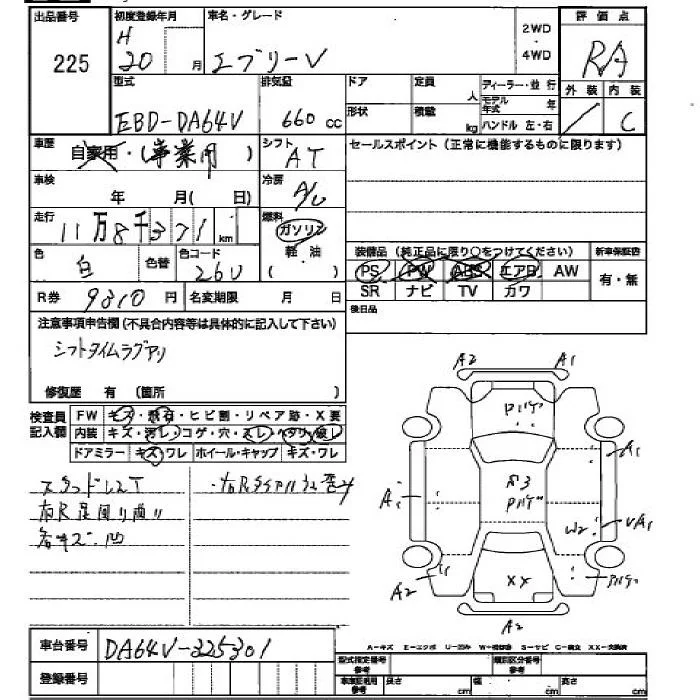 出品番号 初度登録年月 車名・グレード 2WD 評価点
225 H 20 月 エブリーV 4WD RA
型式 排気量 ドア 定員 人 ディーラー・並行 外装 内装
EBD-DA64V 660 cc 形状 積載 kg モデル年式 年 ハンドル 左・右 / C
車歴 自家用・(事業用) シフト AT セールスポイント(正常に機能するものに限ります)
車検 年 月(日) 冷房 A/C
走行 11万8千371km 燃料 ガソリン 軽・油
色 白 色替 色コード 26U 装備品(純正品に限り○をつけてください) 新車保証書
PS PW ABS エアB AW 有・無
R券 9310円 名変期限 月 日 SR ナビ TV カワ
注意事項申告欄(不具合内容等は具体的に記入して下さい) 後日品
シフトタイムラグアリ
修復歴 有 (箇所 )
検査員記入欄 FW キズ・飛石・ヒビ割・リペア跡・X要
内装 キズ・汚レ・コゲ・穴・スレ・ヘタリ・破レ
ドアミラー キズ・ワレ ホイール・キャップ キズ・ワレ
スタッドレスT
各キズ・凹
A2 A1
A1
A1
W2 UA1
A2
XX
A2
車台番号 DA64V-325301
登録番号
A-キズ E-エクボ U-凹み S-サビ XX-交換済
型式指定番号 参考 類別区分番号 参考
長さ cm 幅 cm 高さ cm